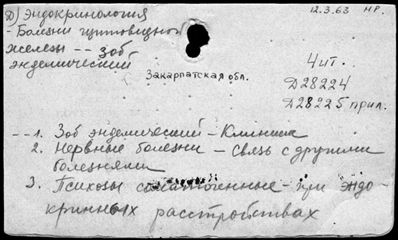 Д) Эндокринология
12.3.63 НР.
- Болезни щитовидной
железы -- зоб
эндемический
Закарпатская обл.
4 ит.
Д28224
Д28225 прил.
--1. Зоб эндемический - Клиника
2. Нервные болезни - Связь с другими
болезнями
3. Психозы соматогенные - при эндо-
кринных расстройствах